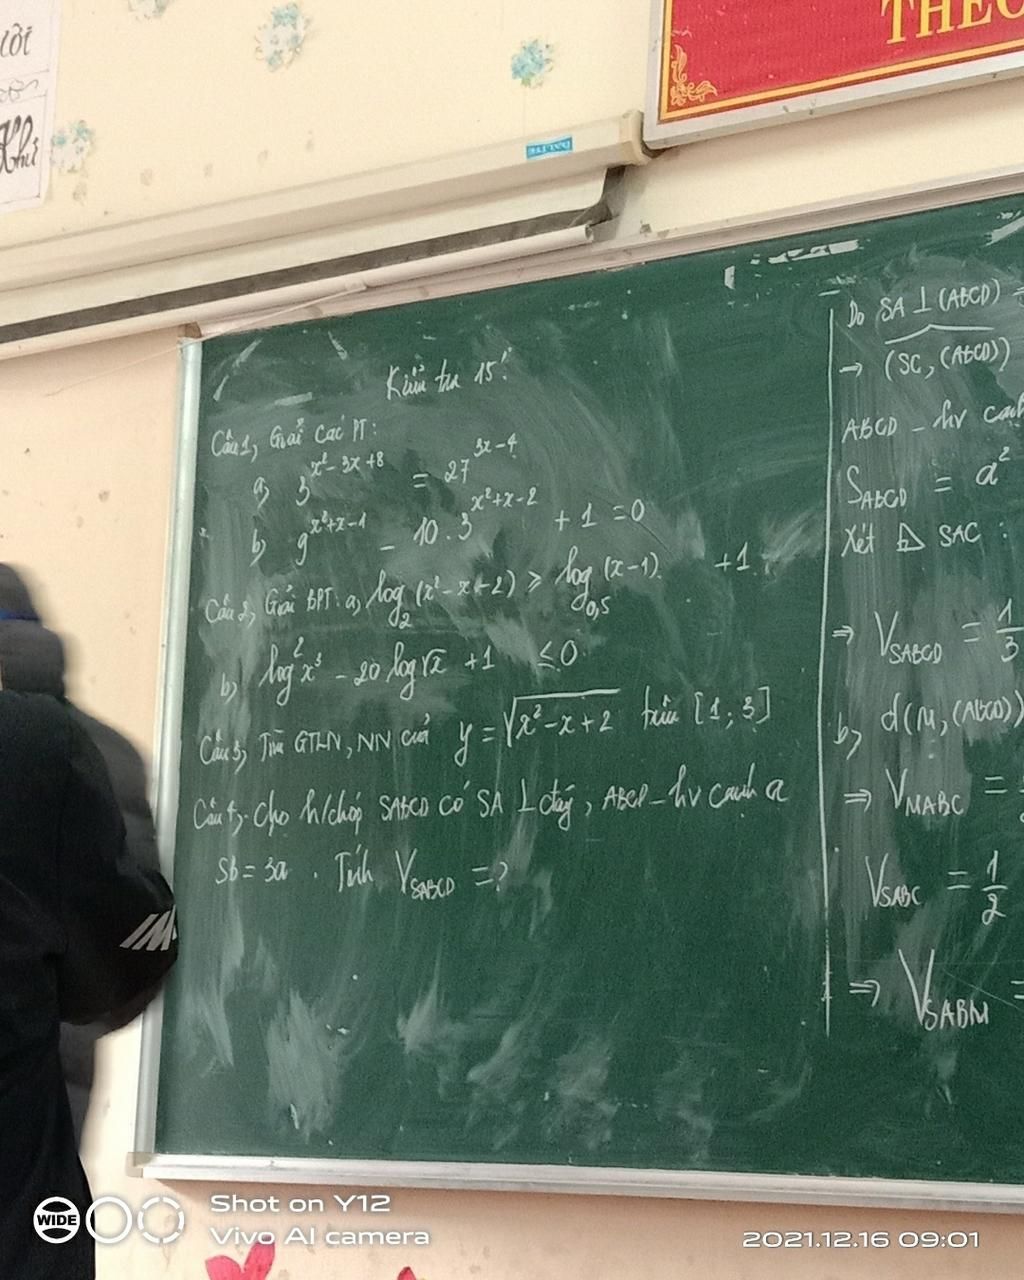 ười
Khi
THEO
Kiểm tra 15'
Câu 1, Giải các PT:
a, 3^{x²-3x+8} = 27^{3x-4}
b, 9^{x²+x-1} - 10.3^{x²+x-2} + 1 = 0
Câu 2, Giải BPT: a, log₂(x²-x-2) ≥ log₀,₅(x-1) + 1
b, log²x³ - 20 log√x + 1 ≤ 0
Câu 3, Tìm GTLN, NN của y = √(x²-x+2) trên [1; 3]
Câu 4, Cho h/chóp SABCD có SA ⊥ đáy, ABCD - hv cạnh a
SB = 3a. Tính V_{SABCD} = ?
Do SA ⊥ (ABCD) ⇒
→ (SC, (ABCD))
ABCD - hv cạnh
S_{ABCD} = a²
Xét SAC :
⇒ V_{SABCD} = 1/3
b, d(M, (ABCD))
⇒ V_{MABC} =
V_{SABC} = 1/2
⇒ V_{SABM} =
WIDE
Shot on Y12
Vivo AI camera
2021.12.16 09:01